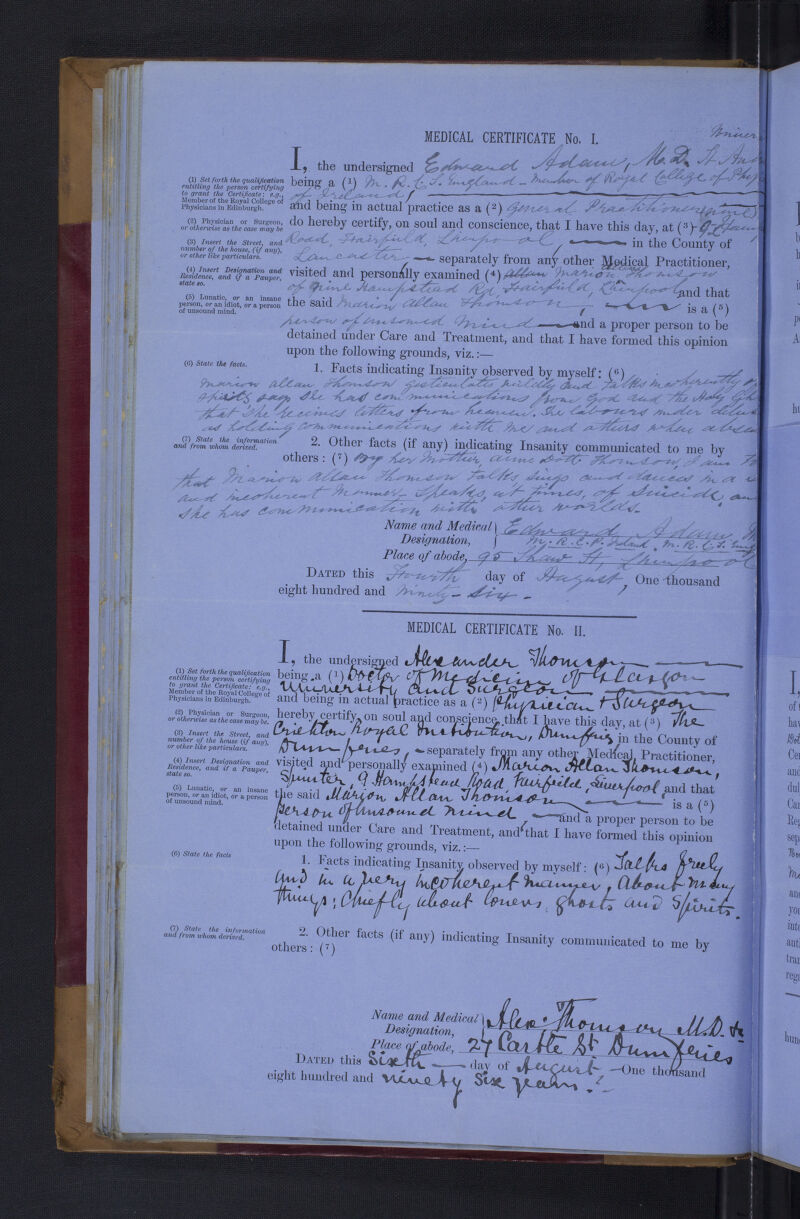 MEDICAL CERTIFICATE No. I.
I, the undersigned Edward Adam, M.D. St
(1) Set forth the qualification entitling the person certifying to grant the Certificate: e.g., Member of the Royal College of Physicians in Edinburgh.
being a (1) M.R.C.S. England - Member of Royal College of
of Ireland,
and being in actual practice as a (2) General Practitioner
(2) Physician or Surgeon, or otherwise as the case may be
do hereby certify, on soul and conscience, that I have this day, at (3) 9
(3) Insert the Street, and number of the house, (if any), or other like particulars.
Road, Fairfield, Liverpool, in the County of
Lancaster — separately from any other Medical Practitioner,
(4) Insert Designation and Residence, and if a Pauper, state so.
visited and personally examined (4) Marion Allan Thomson
of nine Hampstead Rd Fairfield, Liverpool and that
(5) Lunatic, or an insane person, or an idiot, or a person of unsound mind.
the said Marion Allan Thomson, is a (5)
person of unsound mind — and a proper person to be
detained under Care and Treatment, and that I have formed this opinion
upon the following grounds, viz.:—
(6) State the facts.
1. Facts indicating Insanity observed by myself: (6)
Marion Allan Thomson gesticulates wildly and talks incoherently
spirits says she has communications from God and the Holy
that she receives letters from heaven. She labours under
as holding communications with me and others when
(7) State the information and from whom derived.
2. Other facts (if any) indicating Insanity communicated to me by
others: (7) By her Mother, Thomson, I am
that Marion Allan Thomson talks sings and dances in a
and incoherent manner - Speaks, at times, of Suicide,
she has communication with other worlds.
Name and Medical Designation, Edward Adam
M.R.C.P. Ireland, M.R.C.S.
Place of abode, 95 Shaw St, Liverpool
DATED this Fourth day of August, One thousand
eight hundred and Ninety-Six -
MEDICAL CERTIFICATE No. II.
I, the undersigned Alexander Thomson
(1) Set forth the qualification entitling the person certifying to grant the Certificate: e.g., Member of the Royal College of Physicians in Edinburgh.
being a (1) Doctor of Medicine of Glasgow
University and Surgeon
and being in actual practice as a (2) Physician & Surgeon
(2) Physician or Surgeon, or otherwise as the case may be.
hereby certify, on soul and conscience, that I have this day, at (3) The
(3) Insert the Street, and number of the house (if any), or other like particulars.
Crichton Royal Institution, Dumfries in the County of
Dumfries, — separately from any other Medical Practitioner,
(4) Insert Designation and Residence, and if a Pauper, state so.
visited and personally examined (4) Marion Allan Thomson,
Spinster, 9 Hampstead Road Fairfield, Liverpool and that
(5) Lunatic, or an insane person, or an idiot, or a person of unsound mind.
the said Marion Allan Thomson is a (5)
person of unsound mind, — and a proper person to be
detained under Care and Treatment, and that I have formed this opinion
upon the following grounds, viz.:—
(6) State the facts
1. Facts indicating Insanity observed by myself: (6) Talks freely
and in a very incoherent manner, about many
things; Chiefly about lovers, ghosts and Spirits.
(7) State the information and from whom derived.
2. Other facts (if any) indicating Insanity communicated to me by
others: (7)
Name and Medical Designation, Alex. Thomson M.D. &c
Place of abode, 27 Castle St Dumfries
DATED this Sixth — day of August — One thousand
eight hundred and ninety Six years.